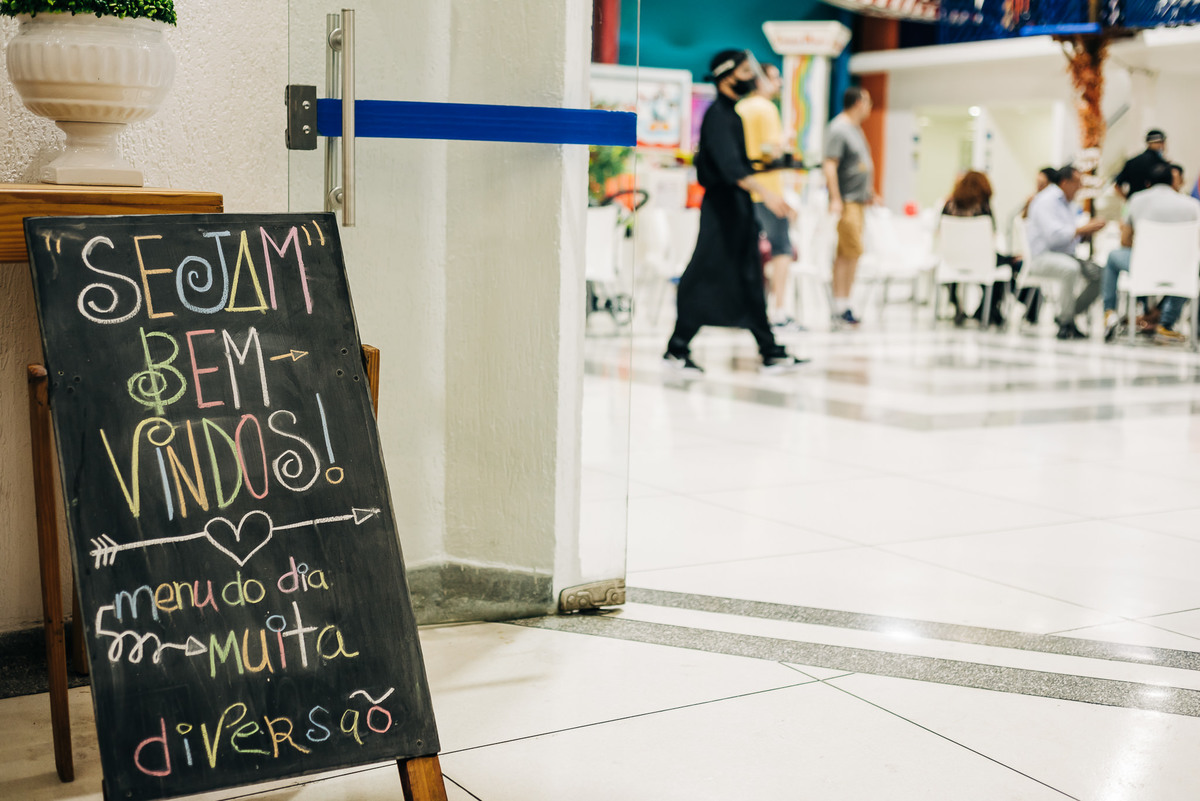 "SEJAM"
BEM
VINDOS!
menu do dia
MUitA
diVERSaõ